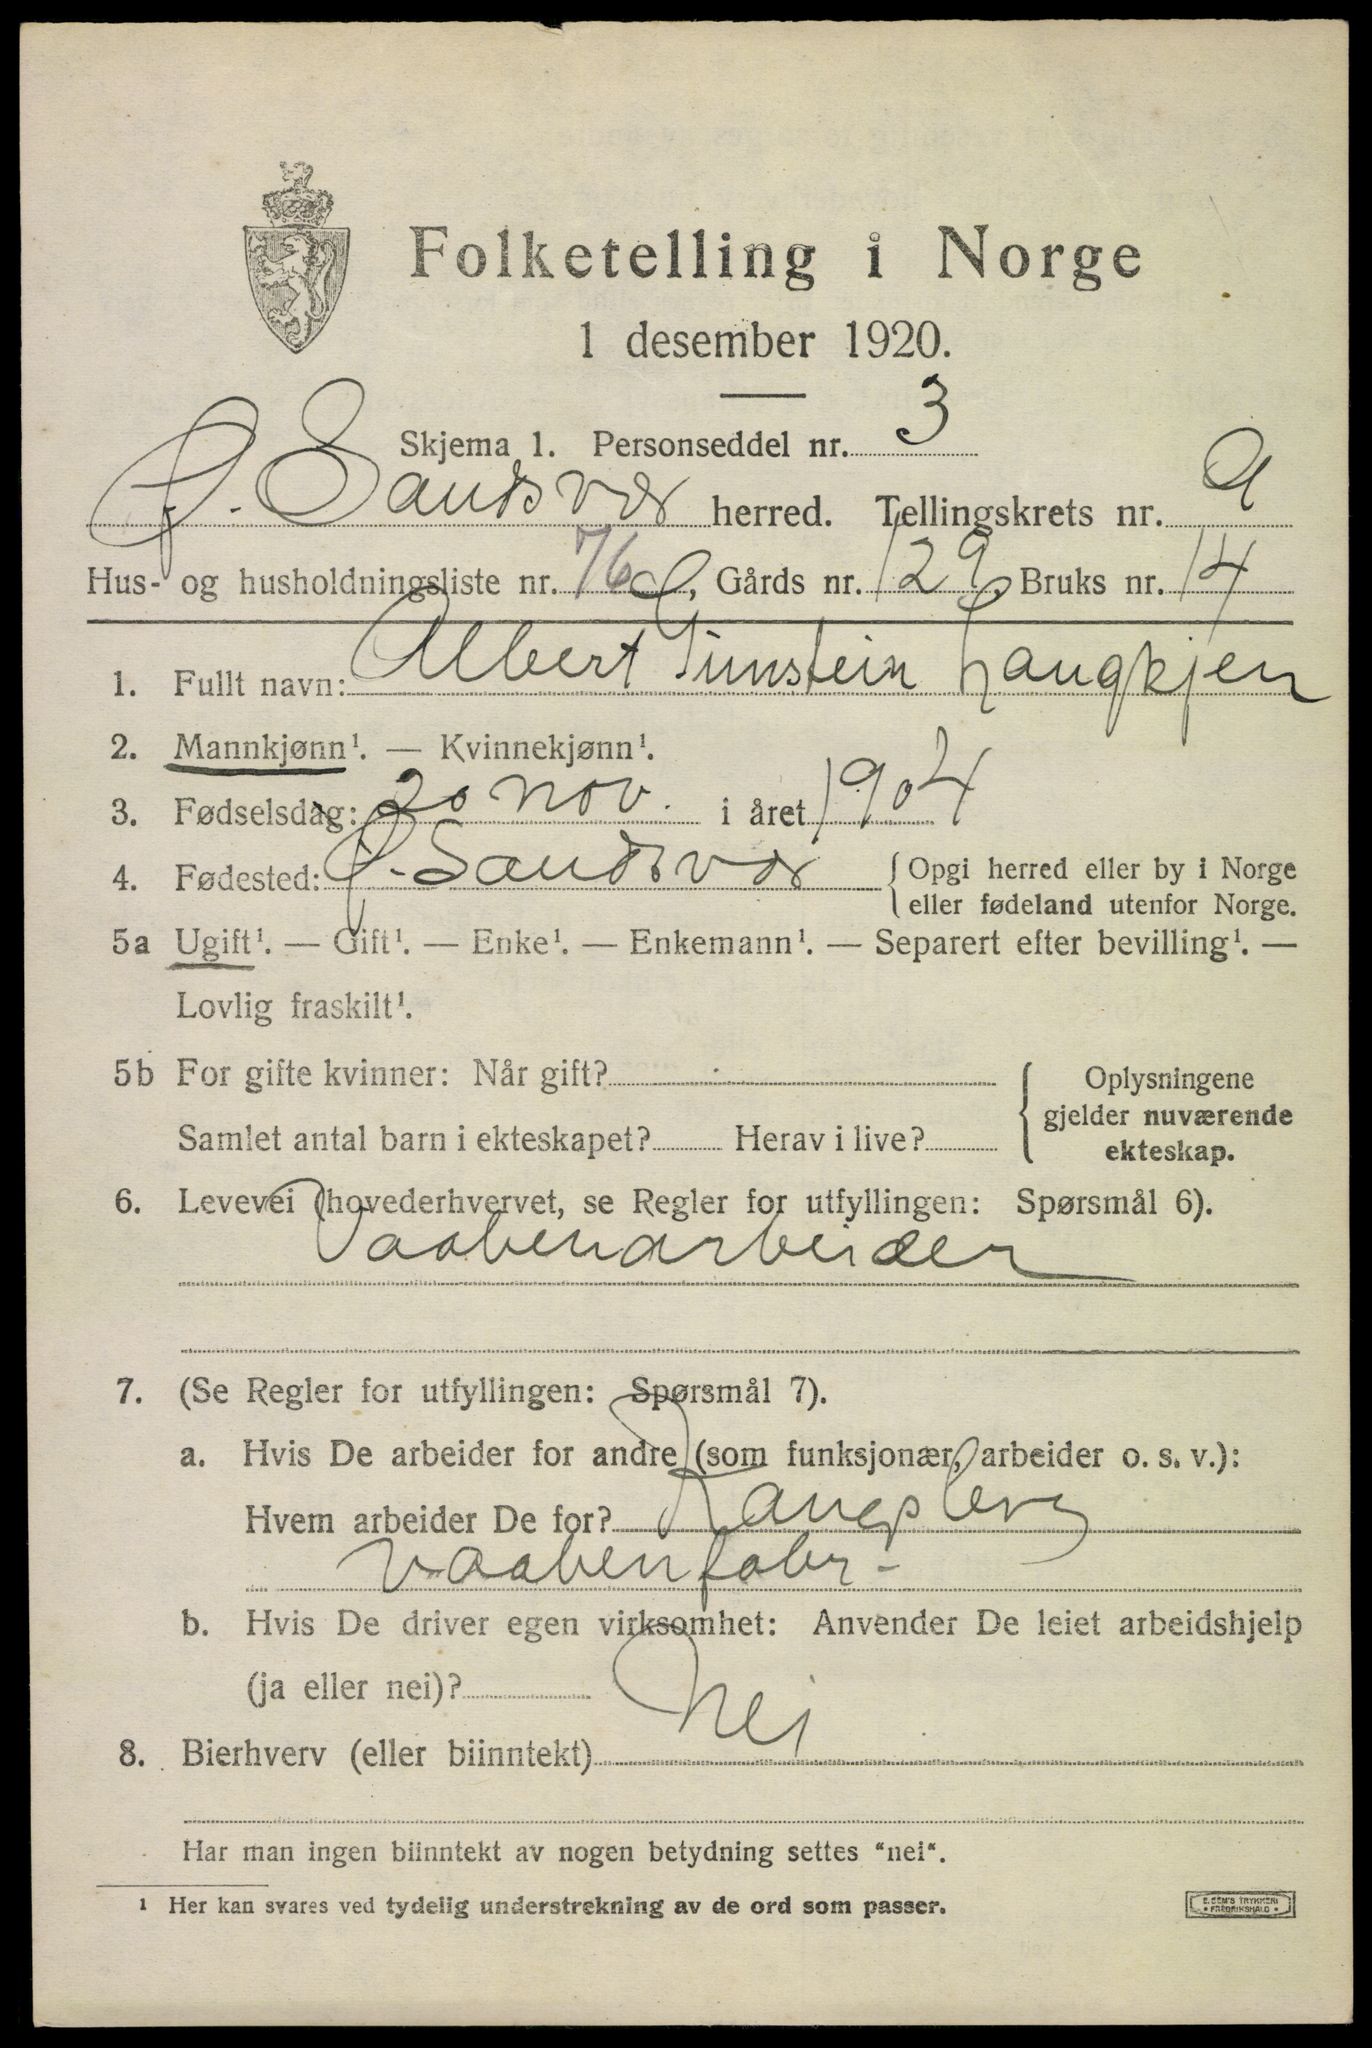 Folketelling i Norge
1 desember 1920.
Skjema 1. Personseddel nr. 3
Ø. Sandsvær herred. Tellingskrets nr. 9
Hus- og husholdningsliste nr. 76, Gårds nr. 129, Bruks nr. 14
1. Fullt navn: Albert Gunstein Langkjen
2. Mannkjønn¹. — Kvinnekjønn¹.
3. Fødselsdag: 20 nov. i året 1904
4. Fødested: Ø. Sandsvær { Opgi herred eller by i Norge
eller fødeland utenfor Norge.
5a Ugift¹. — Gift¹. — Enke¹. — Enkemann¹. — Separert efter bevilling¹. —
Lovlig fraskilt¹.
5b For gifte kvinner: Når gift?
Samlet antal barn i ekteskapet? Herav i live?
{ Oplysningene
gjelder nuværende
ekteskap.
6. Levevei (hovederhvervet, se Regler for utfyllingen: Spørsmål 6).
Vaabenarbeider
7. (Se Regler for utfyllingen: Spørsmål 7).
a. Hvis De arbeider for andre (som funksjonær, arbeider o. s. v.):
Hvem arbeider De for? Kongsberg
vaabenfabr.
b. Hvis De driver egen virksomhet: Anvender De leiet arbeidshjelp
(ja eller nei)?
8. Bierhverv (eller biinntekt) Nei
Har man ingen biinntekt av nogen betydning settes "nei".
¹ Her kan svares ved tydelig understrekning av de ord som passer.
E. SEM'S TRYKKERI
• FREDRIKSHALD •